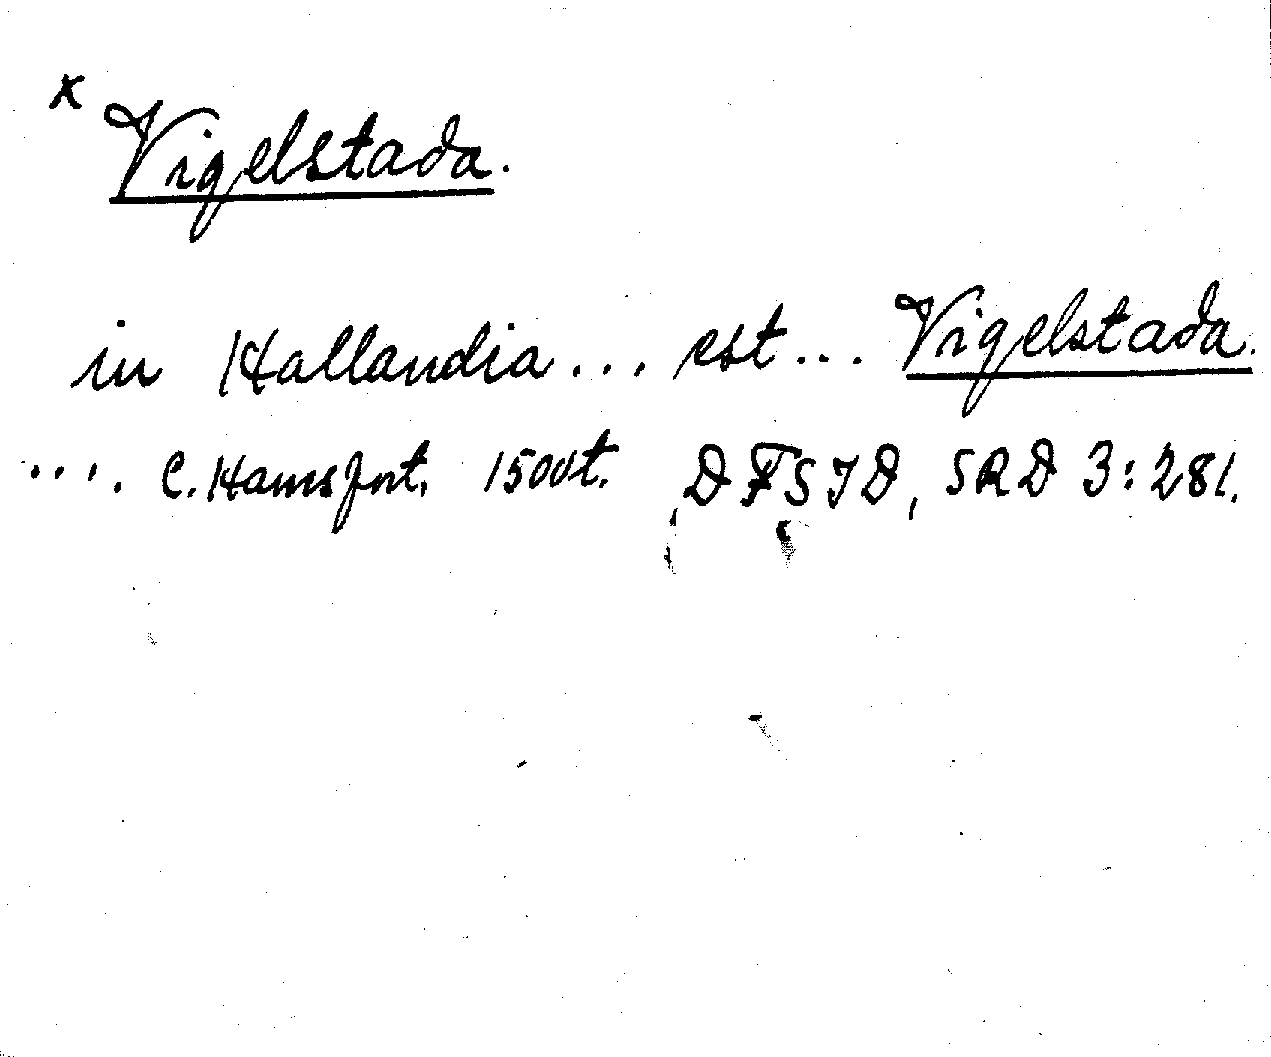 x
Vigelstada.
in Hallandia... est... Vigelstada.
.... C. Hamsfort. 1500t. DFSJD, SRD 3:281.